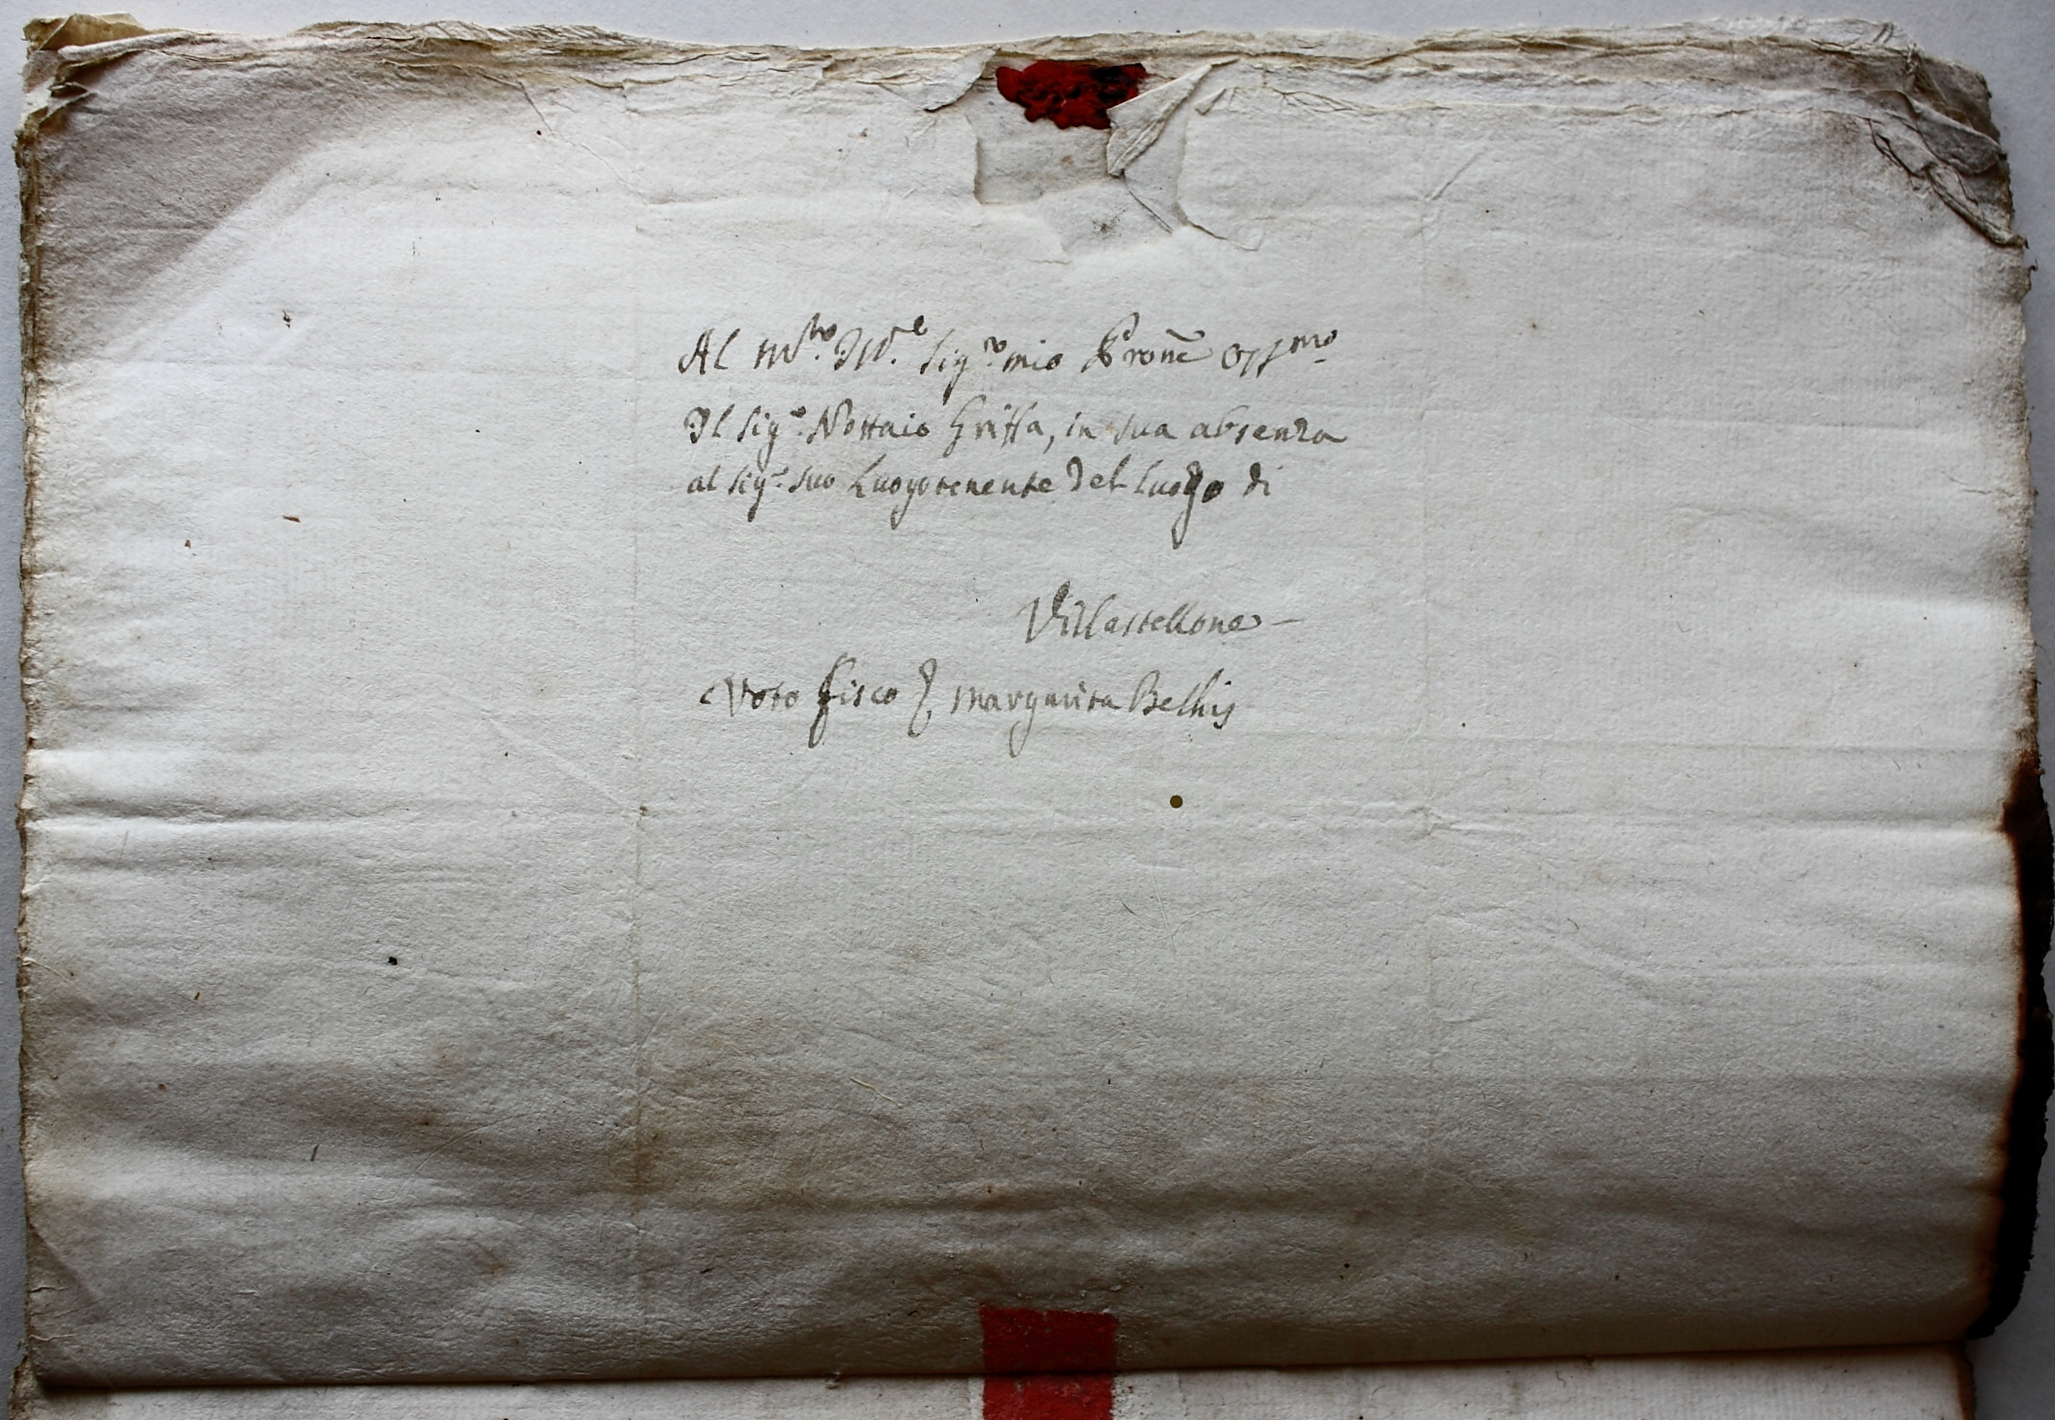 Al M.to Ill.e Sig.r mio Prone Oss.mo
Il Sig.r Nottaio Griffa, in sua absenza
al Sig.r suo Luogotenente del luogo di
Villastellone
Voto fisco Margarita Bellis